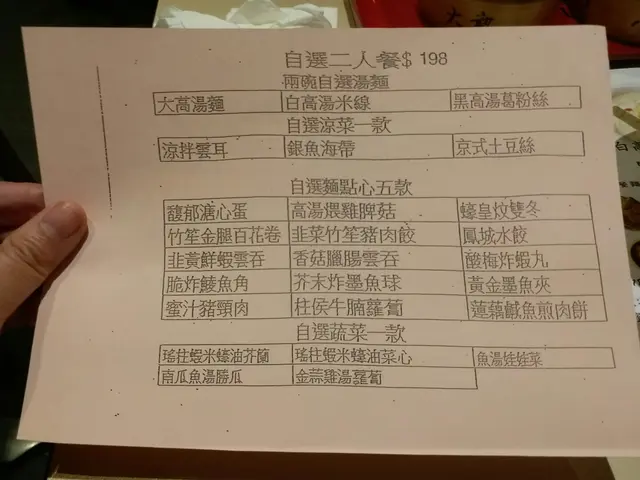 自選二人餐$ 198
兩碗自選湯麵
大高湯麵 白高湯米線 黑高湯葛粉絲
自選涼菜一款
涼拌雲耳 銀魚海帶 京式土豆絲
自選麵點心五款
馥郁溏心蛋 高湯煨雞脾菇 蠔皇炆雙冬
竹笙金腿百花卷 韭菜竹笙豬肉餃 鳳城水餃
韭黃鮮蝦雲吞 香菇臘腸雲吞 酸梅炸蝦丸
脆炸鯪魚角 芥末炸墨魚球 黃金墨魚夾
蜜汁豬頸肉 柱侯牛腩蘿蔔 蓮藕鹹魚煎肉餅
自選蔬菜一款
瑤柱蝦米蠔油芥蘭 瑤柱蝦米蠔油菜心 魚湯娃娃菜
南瓜魚湯勝瓜 金蒜雞湯蘿蔔